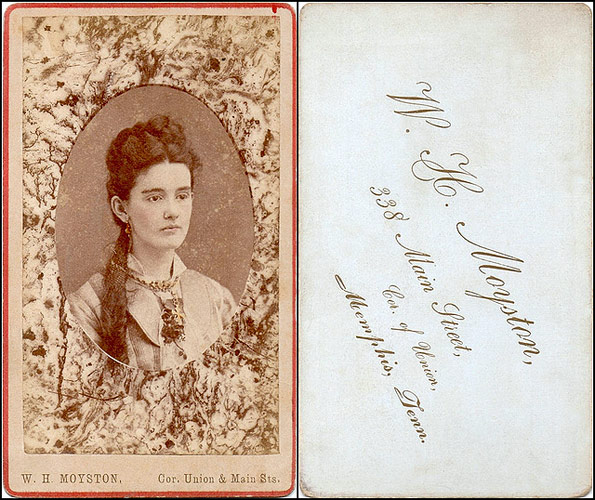 W. H. MOYSTON, Cor. Union & Main Sts.
W. H. Moyston,
338 Main Street,
Cor. of Union,
Memphis, Tenn.